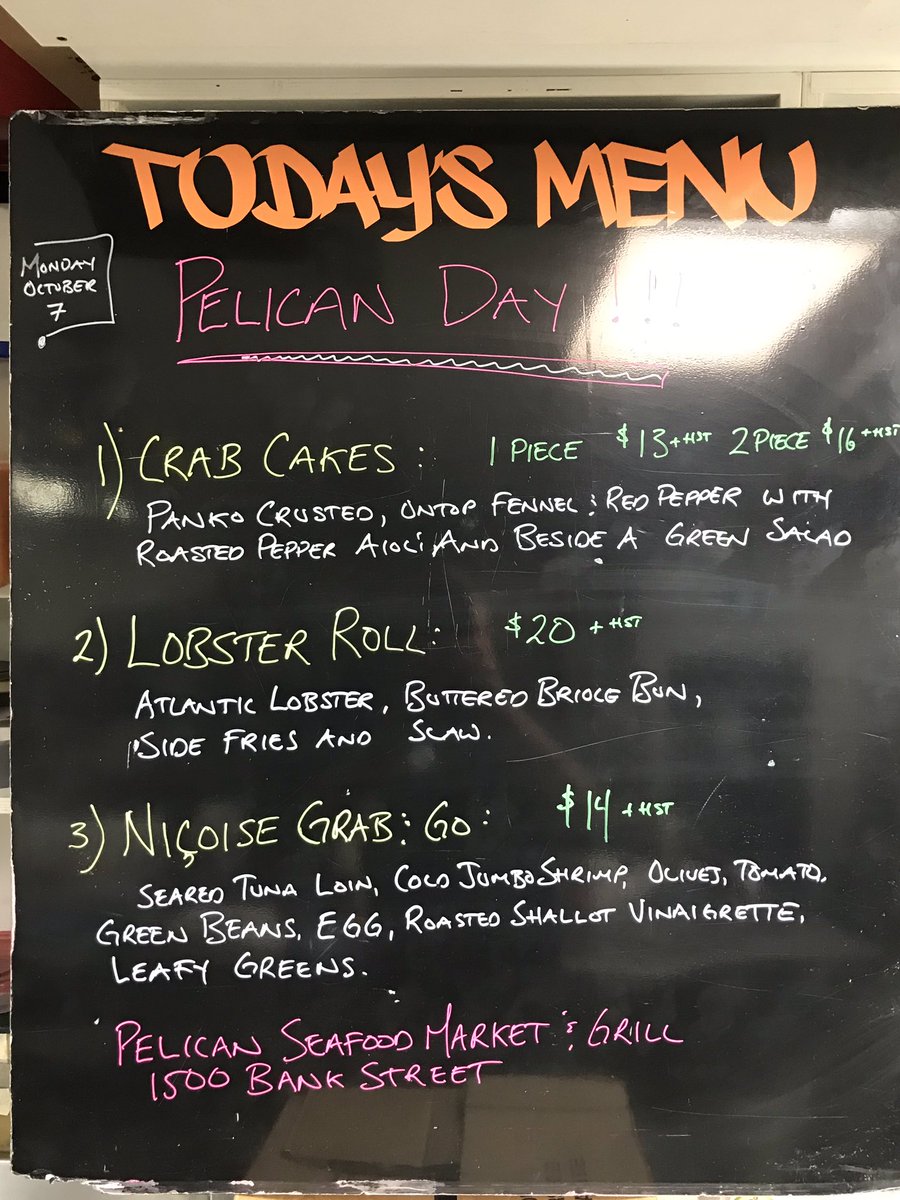 TODAY'S MENU
MONDAY
OCTOBER
7
PELICAN DAY !!!
1) CRAB CAKES: 1 PIECE $13 + HST 2 PIECE $16 + HST
PANKO CRUSTED, ONTOP FENNEL & RED PEPPER WITH
ROASTED PEPPER AIOLI, AND BESIDE A GREEN SALAD
2) LOBSTER ROLL: $20 + HST
ATLANTIC LOBSTER, BUTTERED BRIDGE BUN,
SIDE FRIES AND SLAW.
3) NIÇOISE GRAB & GO: $14 + HST
SEARED TUNA LOIN, COLD JUMBO SHRIMP, OLIVES, TOMATO,
GREEN BEANS, EGG, ROASTED SHALLOT VINAIGRETTE,
LEAFY GREENS.
PELICAN SEAFOOD MARKET & GRILL
1500 BANK STREET